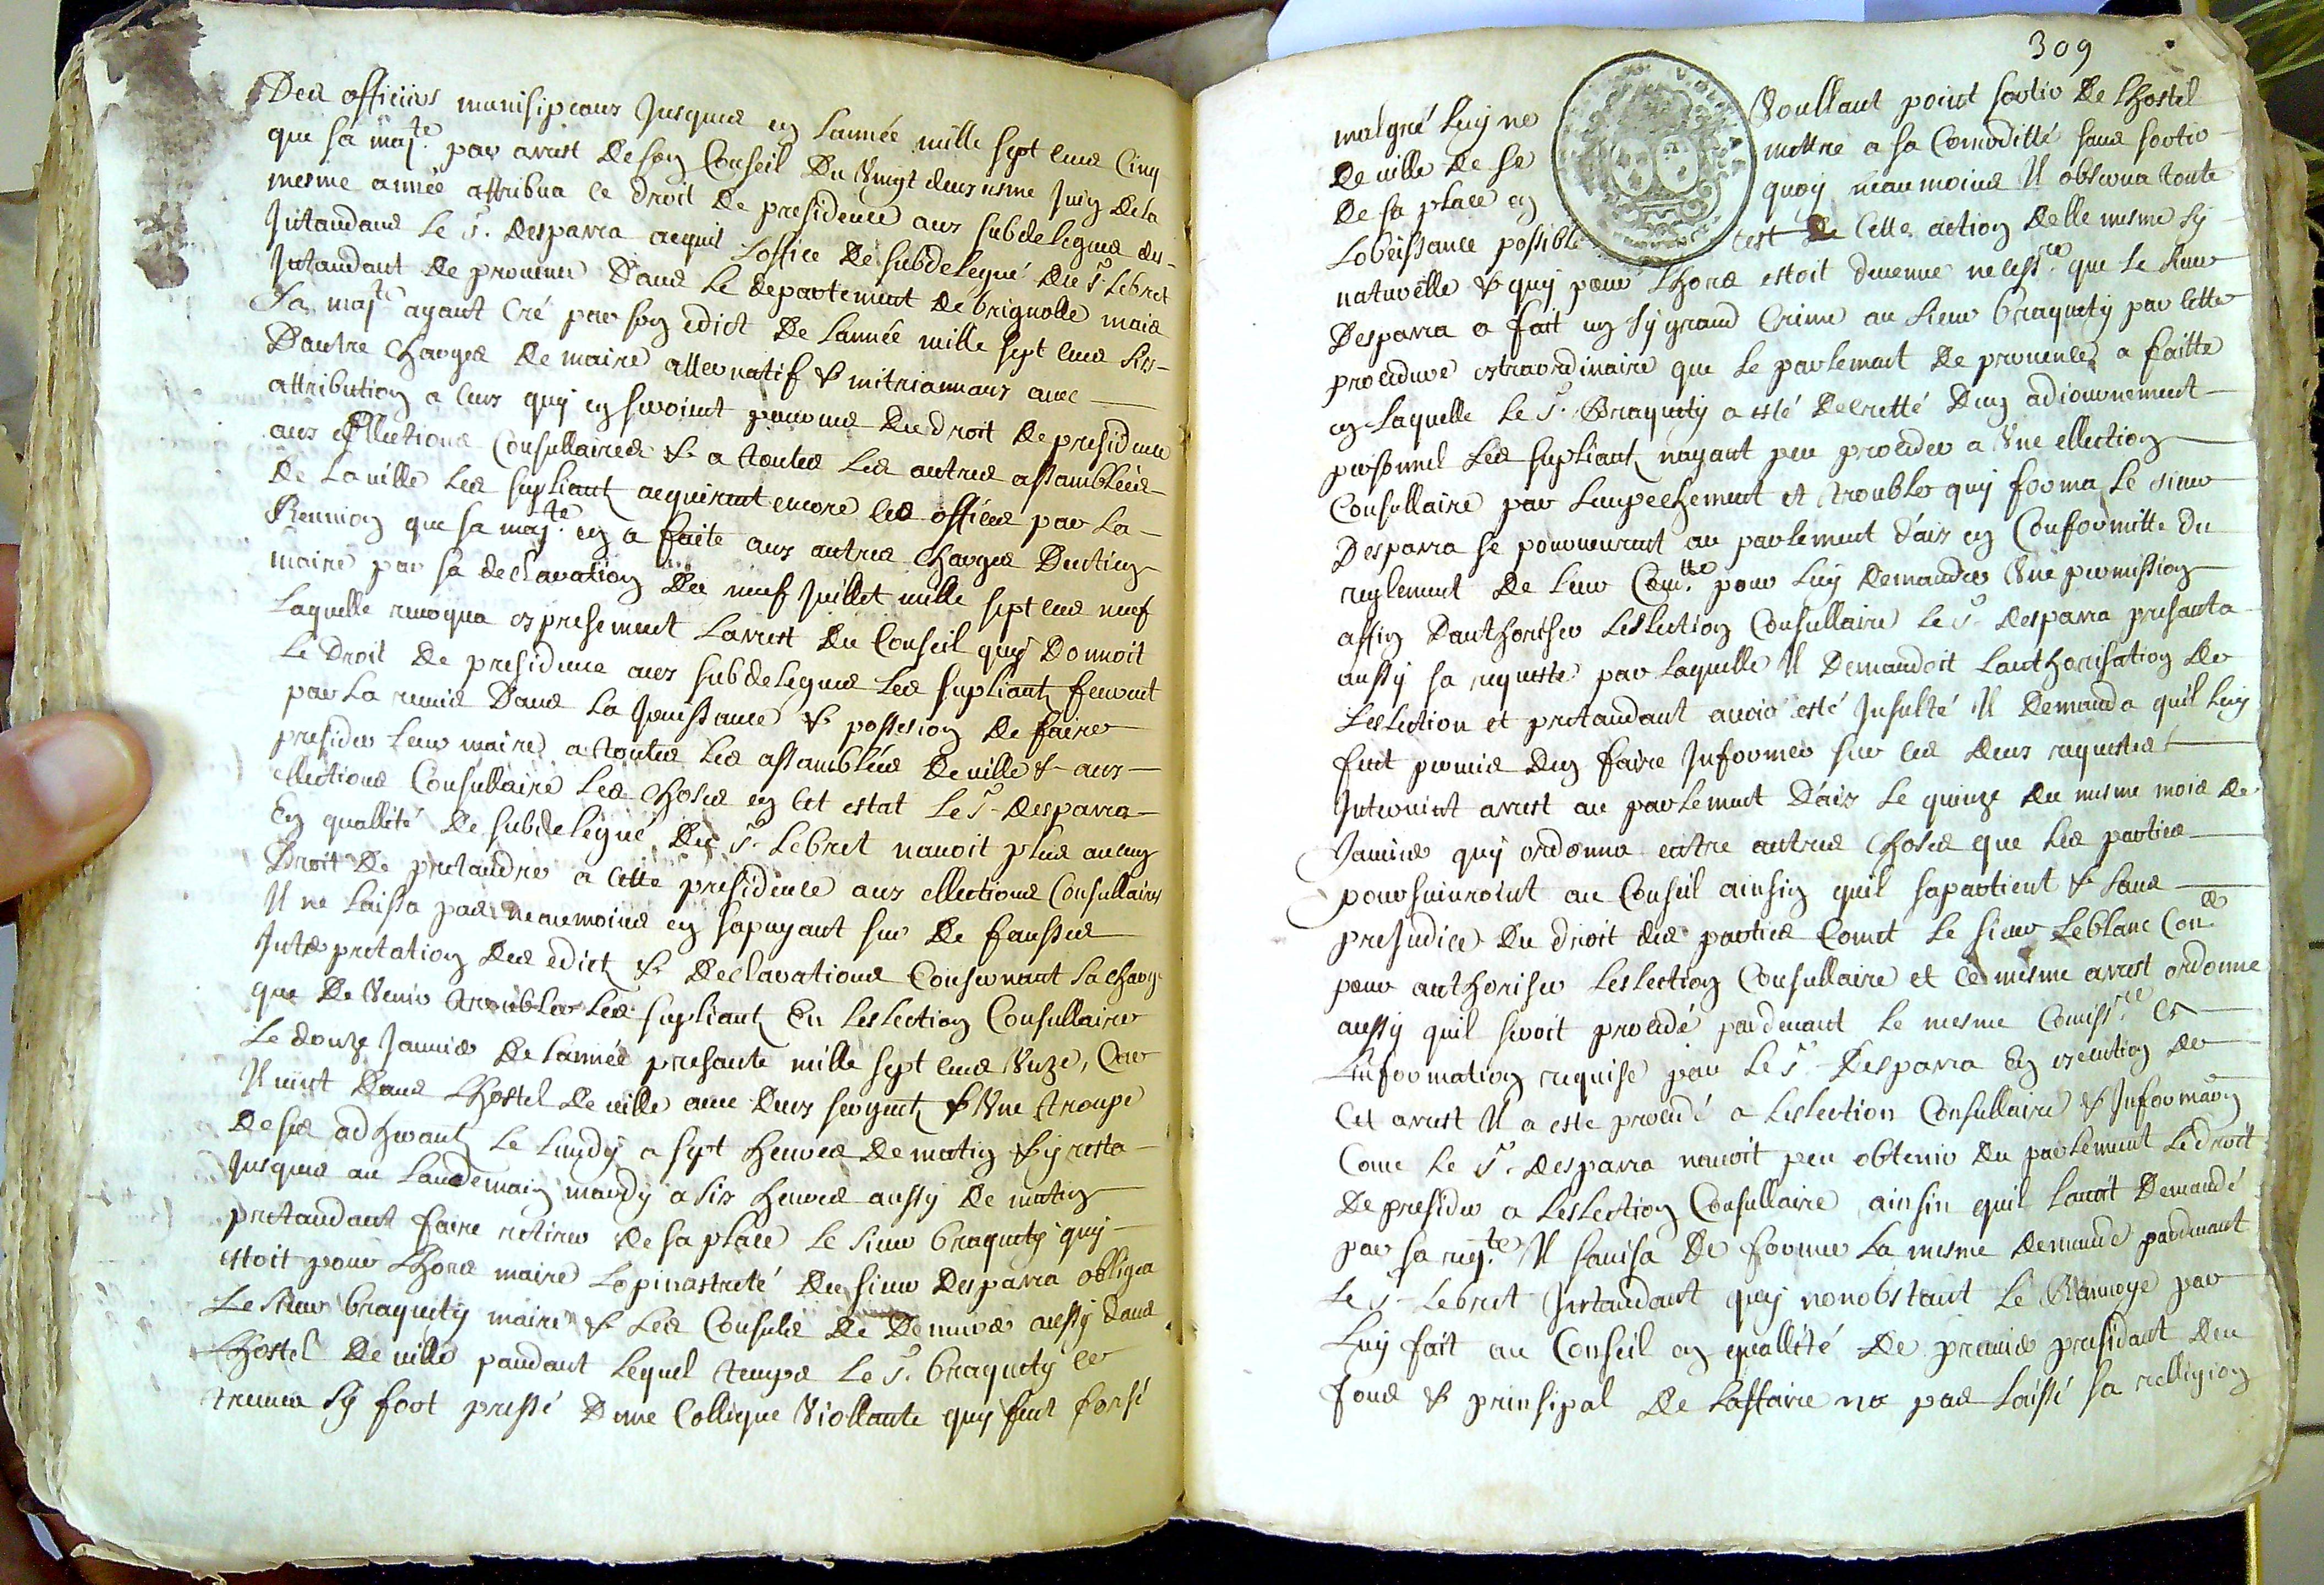 Des officiers munisipeaux Jusques en Lannée mille sept cens Cinq
que sa maj.te par arrest De son Conseil Du Vingt deuxiesme Juin De la
mesme année attribua le droit De presidence aux subdelegues des
Intandans Le S.r Desparra acquit Loffice De subdelegué Du S.r Lebret
Intandant De provence Dans Le departement De brignolle mais
Sa maj.te ayant Cré par son edict De Lannée mille sept cens six
Dautre Charges De maire alternatif & mitriannaux avec
attribution a ceux quy en seroint pourveus Du droit De presidence
aux Ellections Consullaires & a toutes Les autres assamblées
De La ville Les supliants acquirent encore ces offices par La
Reunion que sa maj.te en a faite aux autres charges Dentien
maire par sa declaration Du neuf Juillet mille sept cens neuf
Laquelle revoqua expresement Larrest Du Conseil quy Donnoit
Le Droit De presidence aux subdelegues Les supliants feurent
par La remis Dans La Jouissance & possesion De faire
presider Leur maire a toutes Les assamblées De ville & aux
ellections Consullaire Les choses en Cet estat Le S.r Desparra
En quallité De subdelegué Du S.r Lebret navoit plus aucun
Droit De pretandre a Cette presidence aux ellections Consullaires
Il ne Laissa pas neaumoins en sapuyant sur De fausses
Intepretation Des edicts & Declarations Conservant sa charge
que De Venir troubler Les supliants En Leslection Consullaire
Le douze Janvier De Lannée presante mille sept cens Unze, Car
Il vint Dans Lhostel De ville avec Deux sergents & Une troupe
De ses adherants Le Lundy a sept heures De matin & y resta
Jusques au Landemain mardy a six heures aussy De matin
pretandant faire retirer De sa place Le sieur braquety quy
estoit pour Lhors maire Lopinastreté Du sieur Desparra obligea
Le sieur braquety maire & Les Consuls De Demurer aussy Dans
Lhostel De ville pandant Lequel temps Le S.r braquety ce
treuva sy fort pressé Dune Collique Viollante quy fut forsé
309
malgré Luy ne Voullant point sortir De Lhostel
De ville De se mettre a sa Comoditté sans sortir
De sa place en quoy neaumoins Il observa toute
Lobeissance possible cest De Cette action Delle mesme sy
naturelle & quy pour Lhors estoit devenue necess.re que Le sieur
Desparra a fait un sy grand Crime au sieur braquety par Cette
procedure extraordinaire que Le parlement De provence a faitte
en Laquelle Le S.r Braquety a esté Decretté Dun adiournement
personnel Les supliants nayant peu proceder a Une ellection
Consullaire par Lempechement et troubles quy forma Le sieur
Desparra se pourveurent au parlement daix en Conformitte du
reglement De Leur Com.tte pour Luy Demander Une permission
affin Dauthoriser Leslection Consullaire Le S.r Desparra presanta
aussy sa requeste par Laquelle Il Demandoit Lauthorisation De
Leslection et pretandant avoir esté Insulté Il Demanda quil Luy
fut permis Den faire Informer sur ces deux requestes
Intervint arrest au parlement Daix Le quinze du mesme mois De
Janvier quy ordonna entre autres choses que Les parties
poursuivroint au Conseil ainsin quil sapartient & sans
prejudice Du droit des parties Comet Le sieur Leblanc Con.er
pour authoriser Leslection Consullaire et ce mesme arrest ordonne
aussy quil seroit procedé pardevant Le mesme Comiss.re a
Linformation requise par Le S.r Desparra En execution De
Cet arrest Il a este procedé a Leslection Consullaire & Informaōn
Come Le S.r Desparra navoit peu obtenir Du parlement Le droit
De presider a Leslection Consullaire ainsin quil Lavoit Demandé
par sa req.te Il savisa De former La mesme Demande pardevant
Le S.r Lebret Intandant quy nonobstant Le Ranvoye par
Luy fait au Conseil en quallité De premier presidant Du
fons & prinsipal De Laffaire na pas Laissé sa relligion